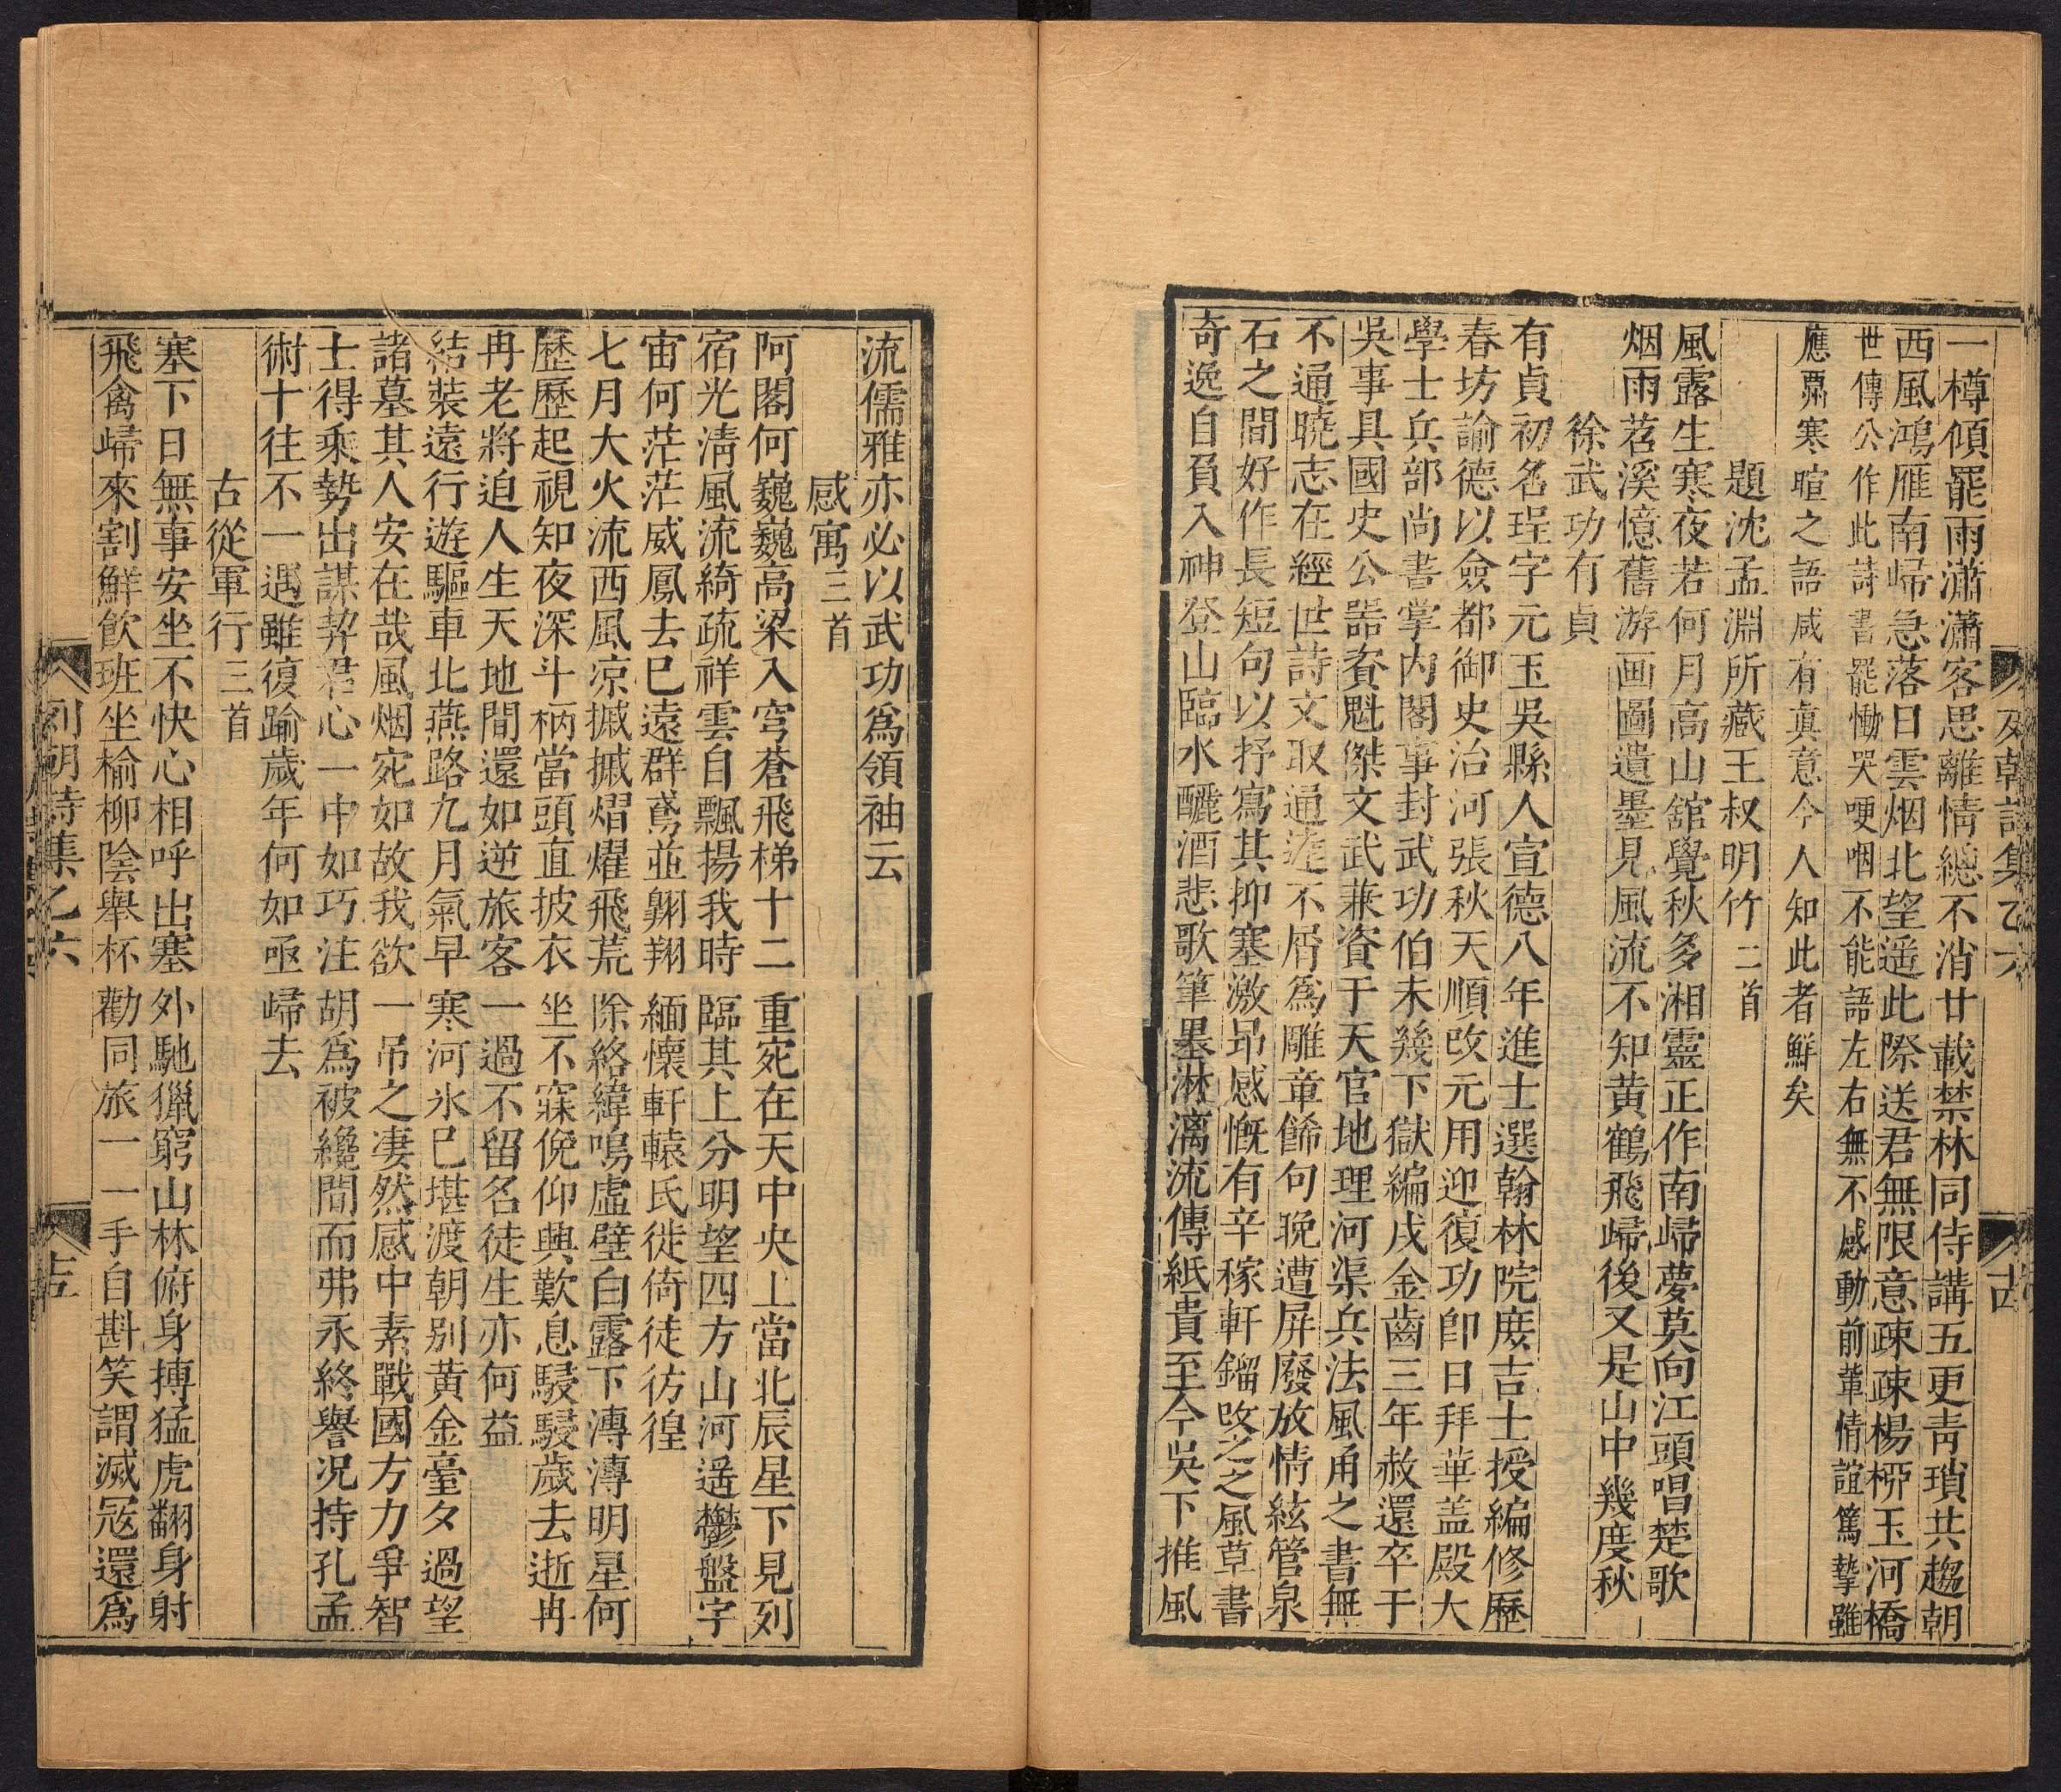 一樽傾罷雨瀟瀟客思離情總不消廿載禁林同侍講五更靑瑣共趨朝
西風鴻雁南歸急落日雲烟北望遥此際送君無限意疎疎楊栁玉河橋
世傳公作此詩書罷慟哭哽咽不能語左右無不感動前輩情誼篤摯雖
應酬寒暄之語咸有眞意今人知此者鮮矣
題沈孟淵所藏王叔明竹二首
風露生寒夜若何月高山舘覺秋多湘靈正作南歸夢莫向江頭唱楚歌
烟雨苕溪憶舊游画圖遺墨見風流不知黄鶴飛歸後又是山中幾度秋
徐武功有貞
有貞初名珵字元玉吳縣人宣德八年進士選翰林院庶吉士授編修歷
春坊諭德以僉都御史治河張秋天順改元用迎復功卽日拜華盖殿大
學士兵部尚書掌內閣事封武功伯未幾下獄編戍金齒三年赦還卒于
吳事具國史公噐資魁傑文武兼資于天官地理河渠兵法風角之書無
不通曉志在經世詩文取通達不屑爲雕章餙句晚遭屏廢放情絃管泉
石之間好作長短句以抒寫其抑塞激昂感慨有辛稼軒鎦改之之風草書
奇逸自負入神登山臨水釃酒悲歌筆墨淋漓流傳紙貴至今吳下推風
列朝詩集乙六
流儒雅亦必以武功爲領袖云
感寓三首
阿閣何巍巍高梁入穹蒼飛梯十二重宛在天中央上當北辰星下見列
宿光淸風流綺疏祥雲自飄揚我時臨其上分明望四方山河遥鬱盤宇
宙何茫茫威鳳去已遠群鳶並翺翔緬懷軒轅氏徙倚徒彷徨
七月大火流西風凉摵摵熠燿飛荒除絡緯鳴虛壁白露下漙漙明星何
歷歷起視知夜深斗柄當頭直披衣坐不寐俛仰興歎息駸駸歲去逝冉
冉老將迫人生天地間還如逆旅客一過不留名徒生亦何益
結裝遠行遊驅車北燕路九月氣早寒河氷已堪渡朝別黄金臺夕過望
諸墓其人安在哉風烟宛如故我欲一吊之凄然感中素戰國方力爭智
士得乘勢出謀契君心一中如巧注胡爲被纔間而弗永終譽況持孔孟
術十往不一遇雖復踰歲年何如亟歸去
古從軍行三首
塞下日無事安坐不快心相呼出塞外馳獵窮山林俯身搏猛虎翻身射
飛禽歸來割鮮飮班坐榆柳陰舉杯勸同旅一一手自斟笑謂滅冦還爲
列朝詩集乙六